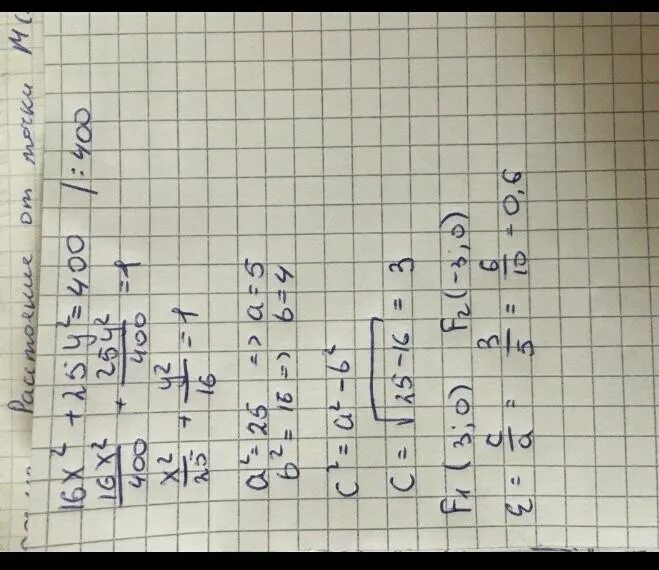 Расстояние от точки М(
16x² + 25y² = 400 |:400
16x²/400 + 25y²/400 = 1
x²/25 + y²/16 = 1
a² = 25 => a = 5
b² = 16 => b = 4
c² = a² - b²
c = √25-16 = 3
F₁ (3;0) F₂ (-3;0)
ε = c/a = 3/5 = 6/10 = 0,6